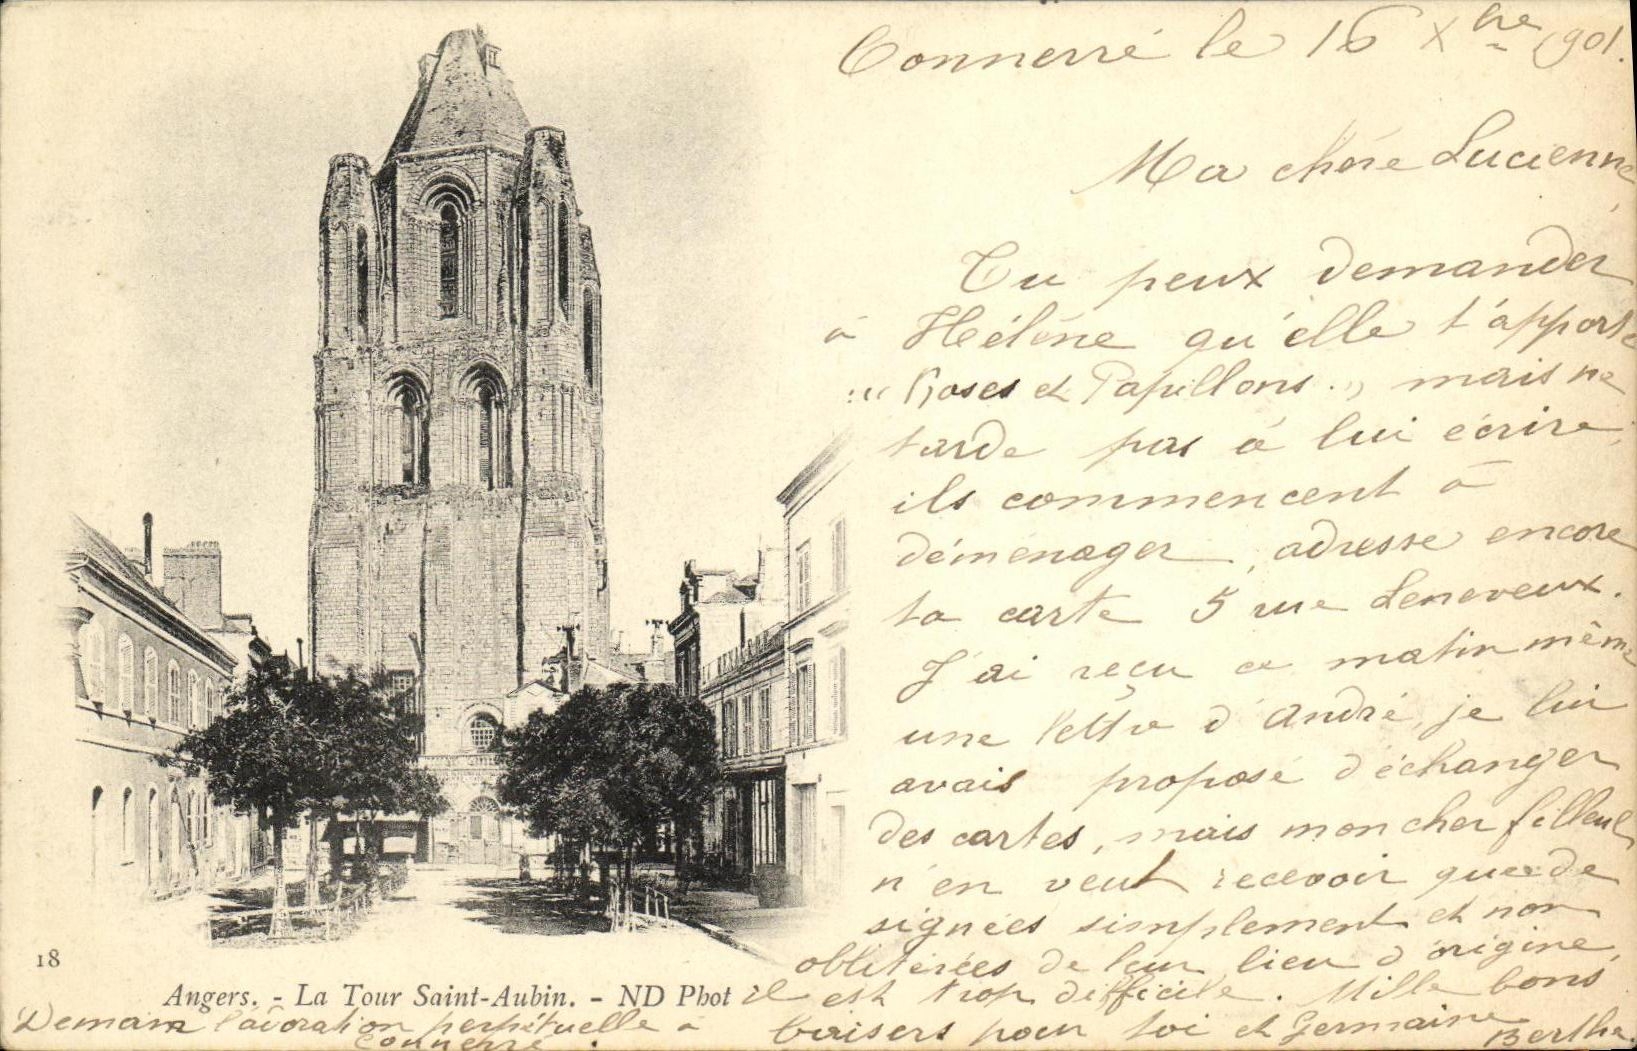 Connerré le 16 Xbre 1901.
Ma chère Lucienne,
Tu peux demander
à Hélène qu'elle t'apporte
"Roses et Papillons", mais ne
tarde pas à lui écrire,
ils commencent à
déménager, adresse encore
ta carte 5 rue Leneveux.
J'ai reçu ce matin même
une lettre d'André, je lui
avais proposé d'échanger
des cartes, mais mon cher filleul
n'en veut recevoir que de
signées simplement et non
oblitérées de leur lieu d'origine,
il est trop difficile. Mille bons
baisers pour toi et Germaine
Berthe
18
Angers. - La Tour Saint-Aubin. - ND Phot
Demain l'adoration perpétuelle à
Connerré.